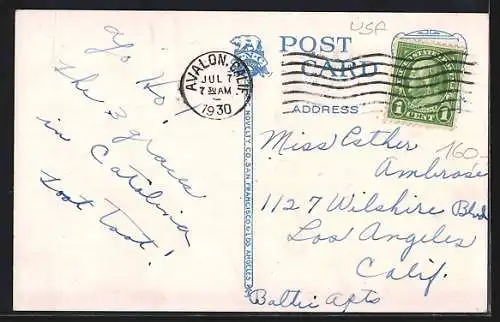 USA
POST
CARD
ADDRESS
AVALON, CALIF.
JUL 7
7 30 AM
1930
1 CENT 1
NOVELTY CO. SAN FRANCISCO & LOS ANGELES
Ho!
The 3 graces
in Catalina
Toot Toot!
160-
Miss Esther
Ambrose
1127 Wilshire Blvd
Los Angeles
Calif.
Baltic Apts